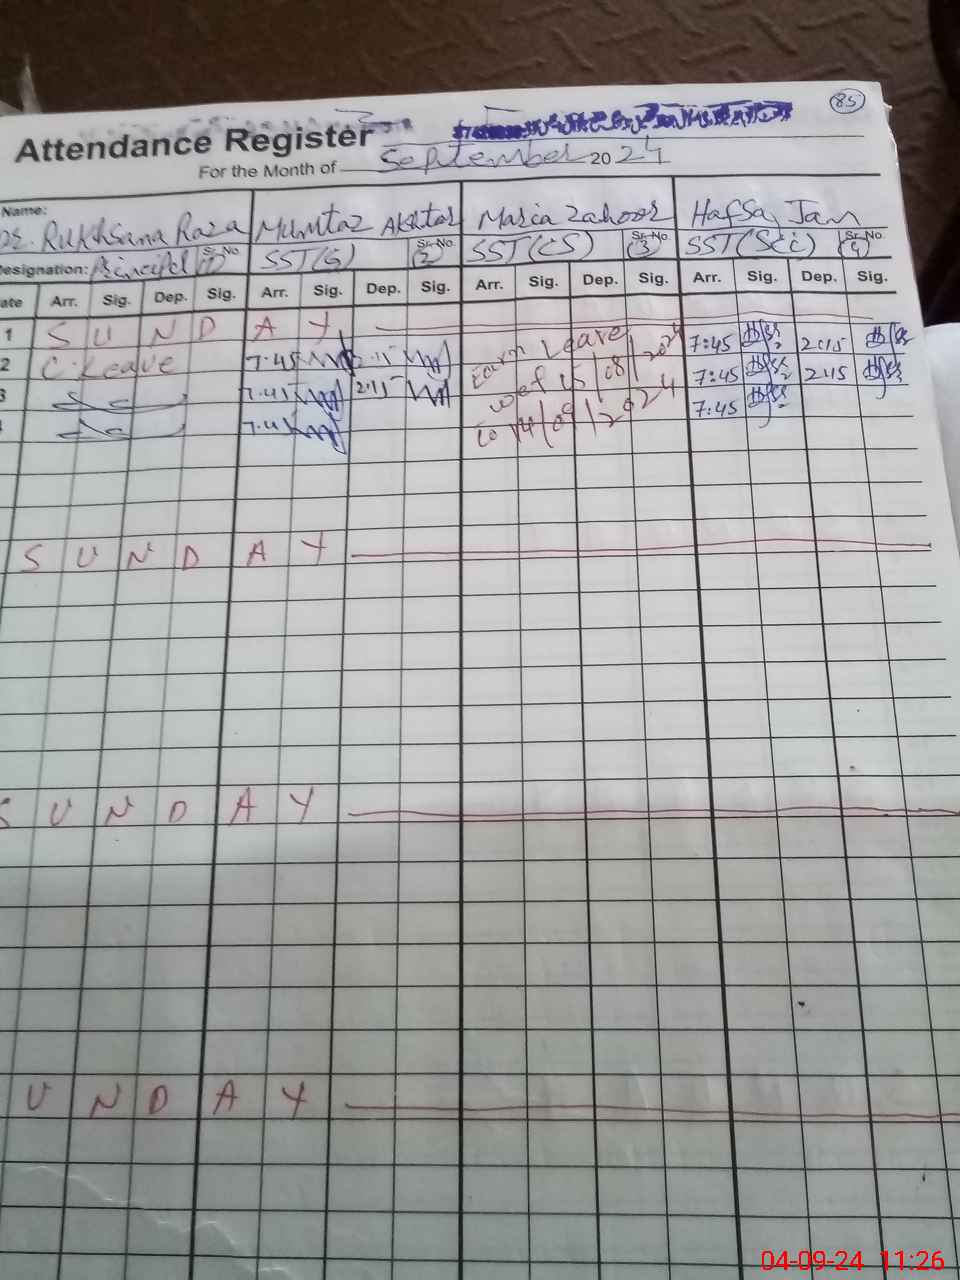 85
Attendance Register
For the Month of September 2024
Name: Dr. Rukhsana Raza Mumtaz Akhtar Maria Zahoor Hafsa Jam
Designation: Principal Sr. No. 1 SST(G) Sr. No. 2 SST(CS) Sr. No. 3 SST(Sci) Sr. No. 4
Date Arr. Sig. Dep. Sig. Arr. Sig. Dep. Sig. Arr. Sig. Dep. Sig. Arr. Sig. Dep. Sig.
1 SUNDAY
2 C. Leave 7:45 2:15 Earn Leave 7:45 2:15
3 7:45 2:15 wef 15/08/2024 7:45 2:15
4 7:45 to 14/09/2024 7:45
SUNDAY
SUNDAY
UNDAY
04-09-24 11:26